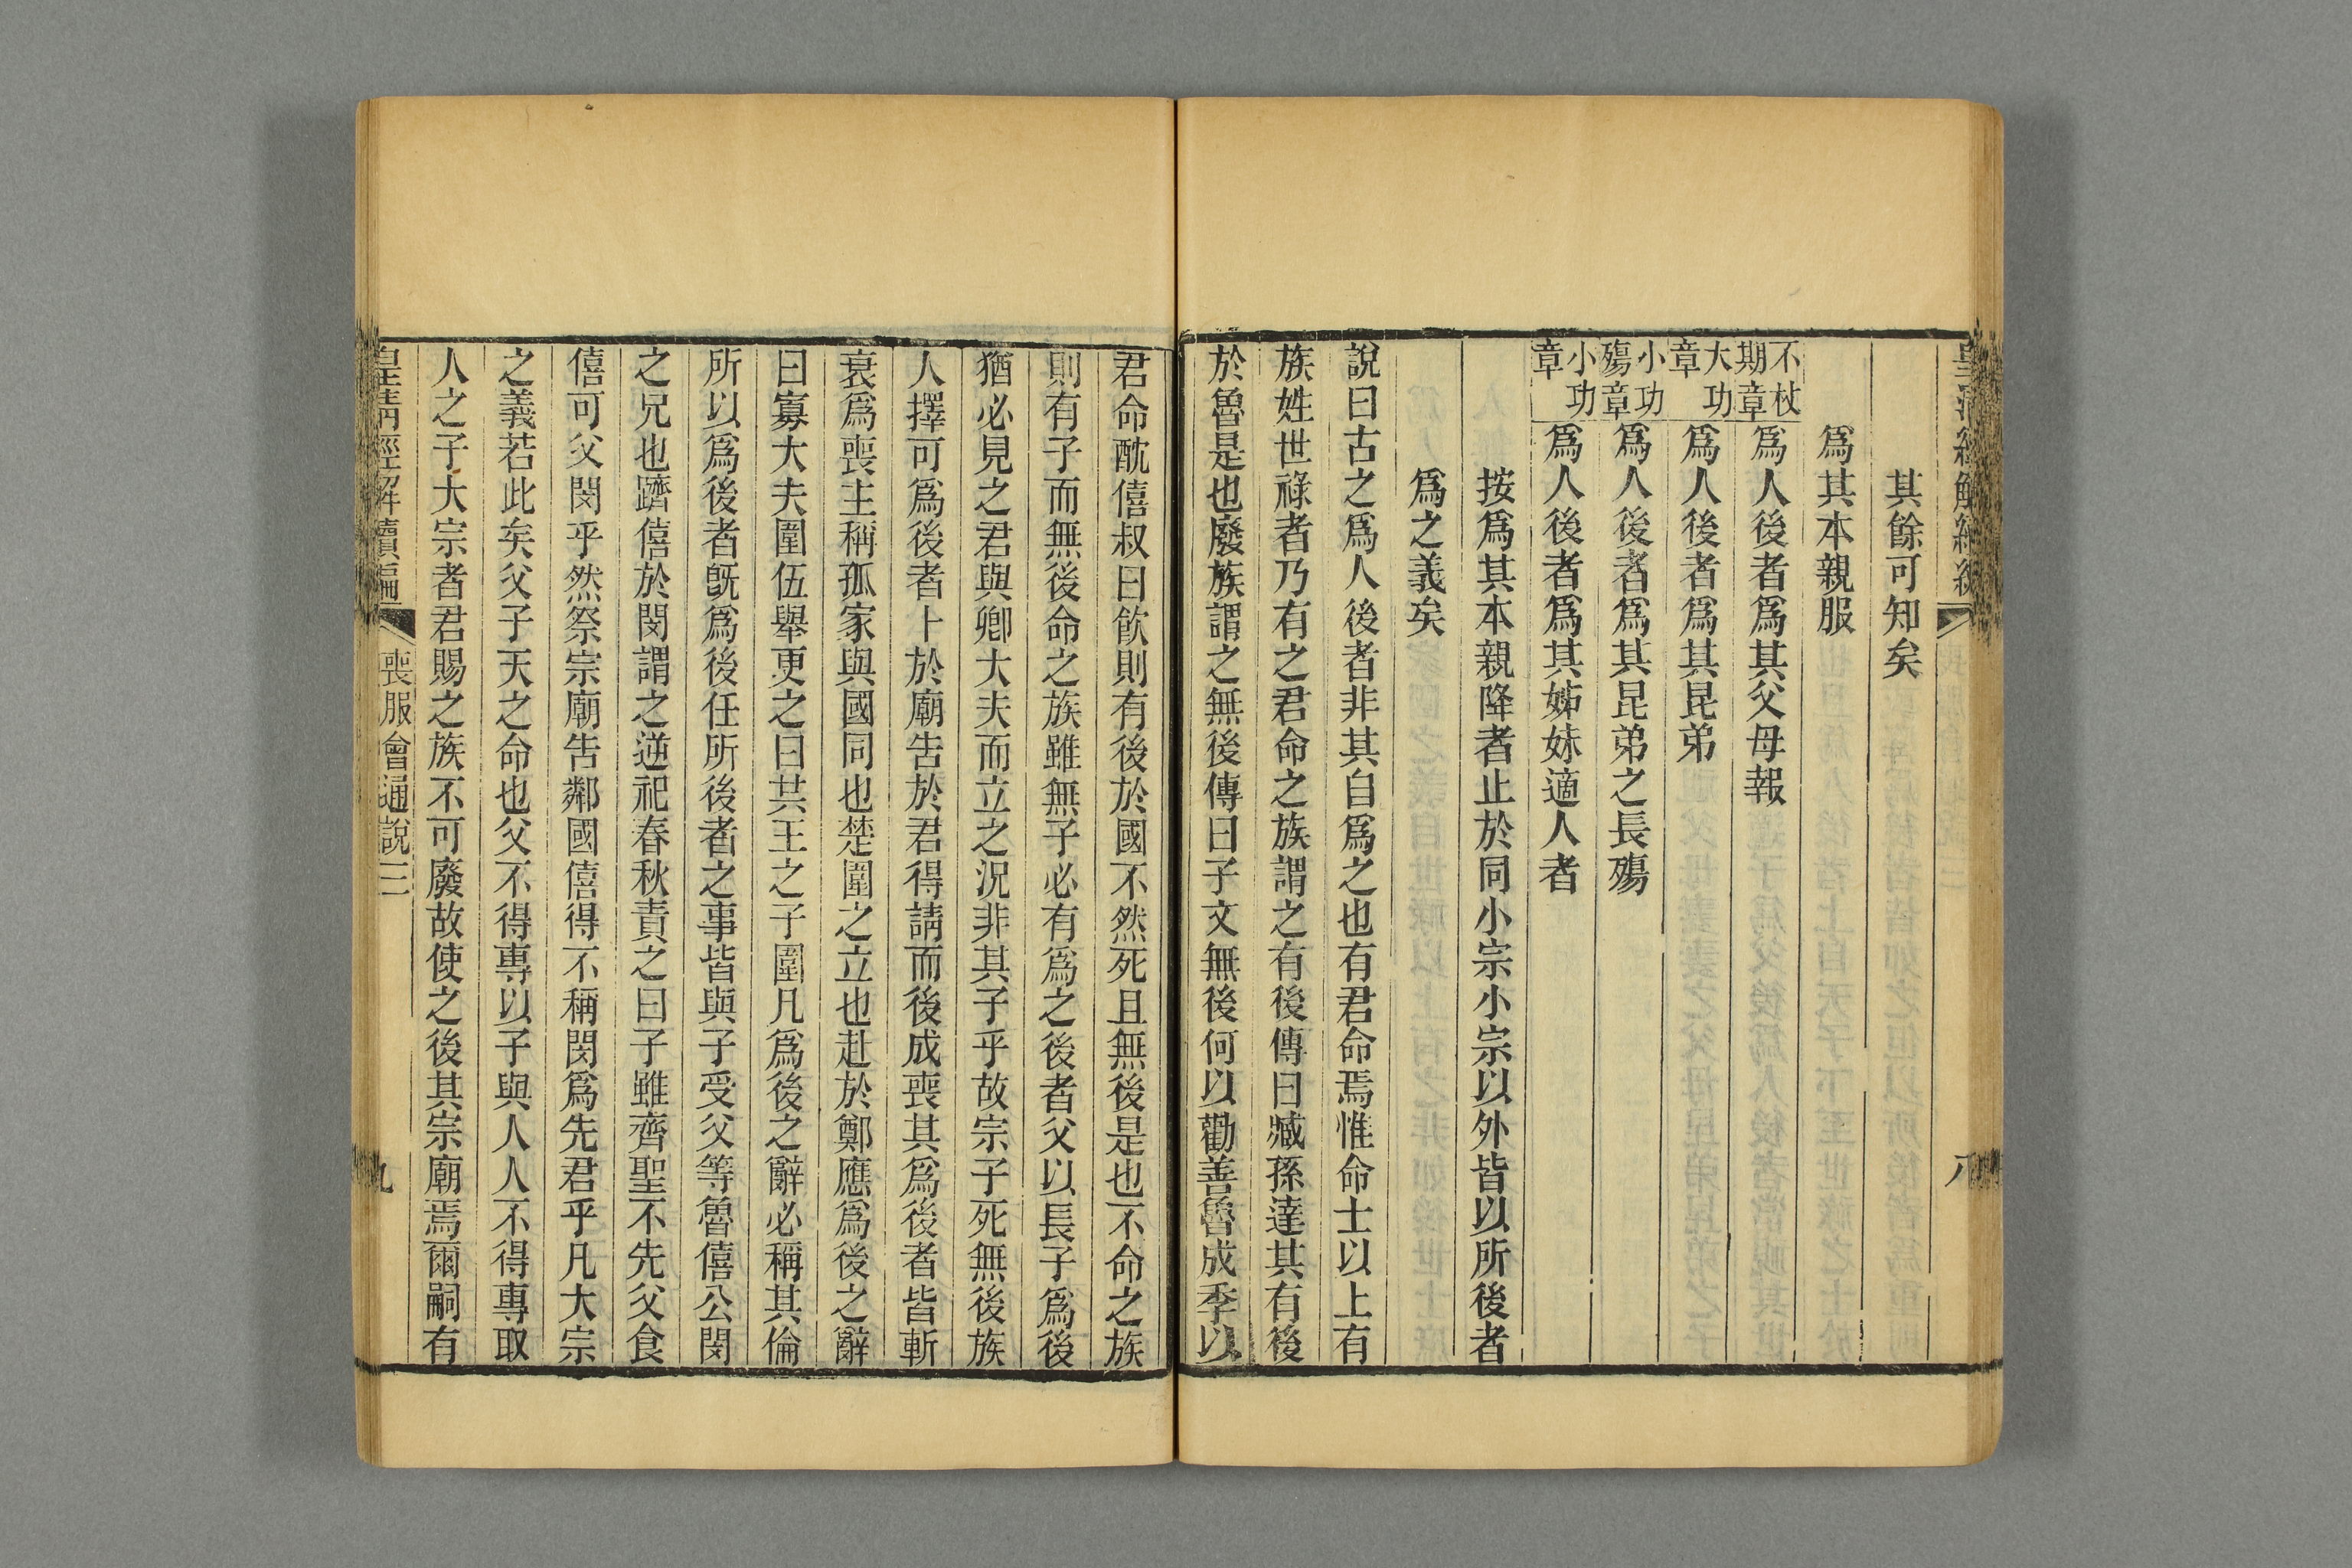 其餘可知矣
爲其本親服
不杖期章 爲人後者爲其父母報
大功章 爲人後者爲其昆弟
小功殤章 爲人後者爲其昆弟之長殤
小功章 爲人後者爲其姊妹適人者
按爲其本親降者止於同小宗小宗以外皆以所後者
爲之義矣
說曰古之爲人後者非其自爲之也有君命焉惟命士以上有
族姓世祿者乃有之君命之族謂之有後傳曰臧孫達其有後
於魯是也廢族謂之無後傳曰子文無後何以勸善魯成季以
君命酖僖叔曰飮則有後於國不然死且無後是也不命之族
則有子而無後命之族雖無子必有爲之後者父以長子爲後
猶必見之君與卿大夫而立之況非其子乎故宗子死無後族
人擇可爲後者卜於廟告於君得請而後成喪其爲後者皆斬
衰爲喪主稱孤家與國同也楚圍之立也赴於鄭應爲後之辭
曰寡大夫圍伍舉更之曰共王之子圍凡爲後之辭必稱其倫
所以爲後者旣爲後任所後者之事皆與子受父等魯僖公閔
之兄也躋僖於閔謂之逆祀春秋責之曰子雖齊聖不先父食
僖可父閔乎然祭宗廟告鄰國僖得不稱閔爲先君乎凡大宗
之義若此矣父子天之命也父不得專以子與人人不得專取
人之子大宗者君賜之族不可廢故使之後其宗廟焉爾嗣有
皇淸經解續編 喪服會通說三 九